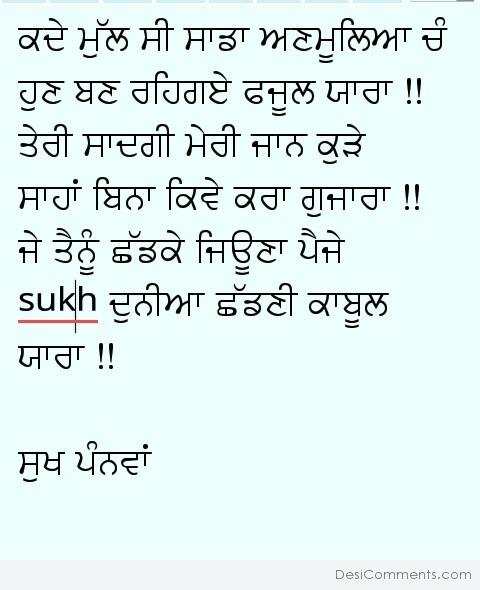 ਕਦੇ ਮੁੱਲ ਸੀ ਸਾਡਾ ਅਣਮੂਲਿਆ ਚੰ
ਹੁਣ ਬਣ ਰਹਿਗਏ ਫਜੂਲ ਯਾਰਾ !!
ਤੇਰੀ ਸਾਦਗੀ ਮੇਰੀ ਜਾਨ ਕੁੜੇ
ਸਾਹਾਂ ਬਿਨਾ ਕਿਵੇ ਕਰਾ ਗੁਜਾਰਾ !!
ਜੇ ਤੈਨੂੰ ਛੱਡਕੇ ਜਿਊਣਾ ਪੈਜੇ
sukh ਦੁਨੀਆ ਛੱਡਣੀ ਕਾਬੂਲ
ਯਾਰਾ !!
ਸੁਖ ਪੰਨਵਾਂ
DesiComments.com